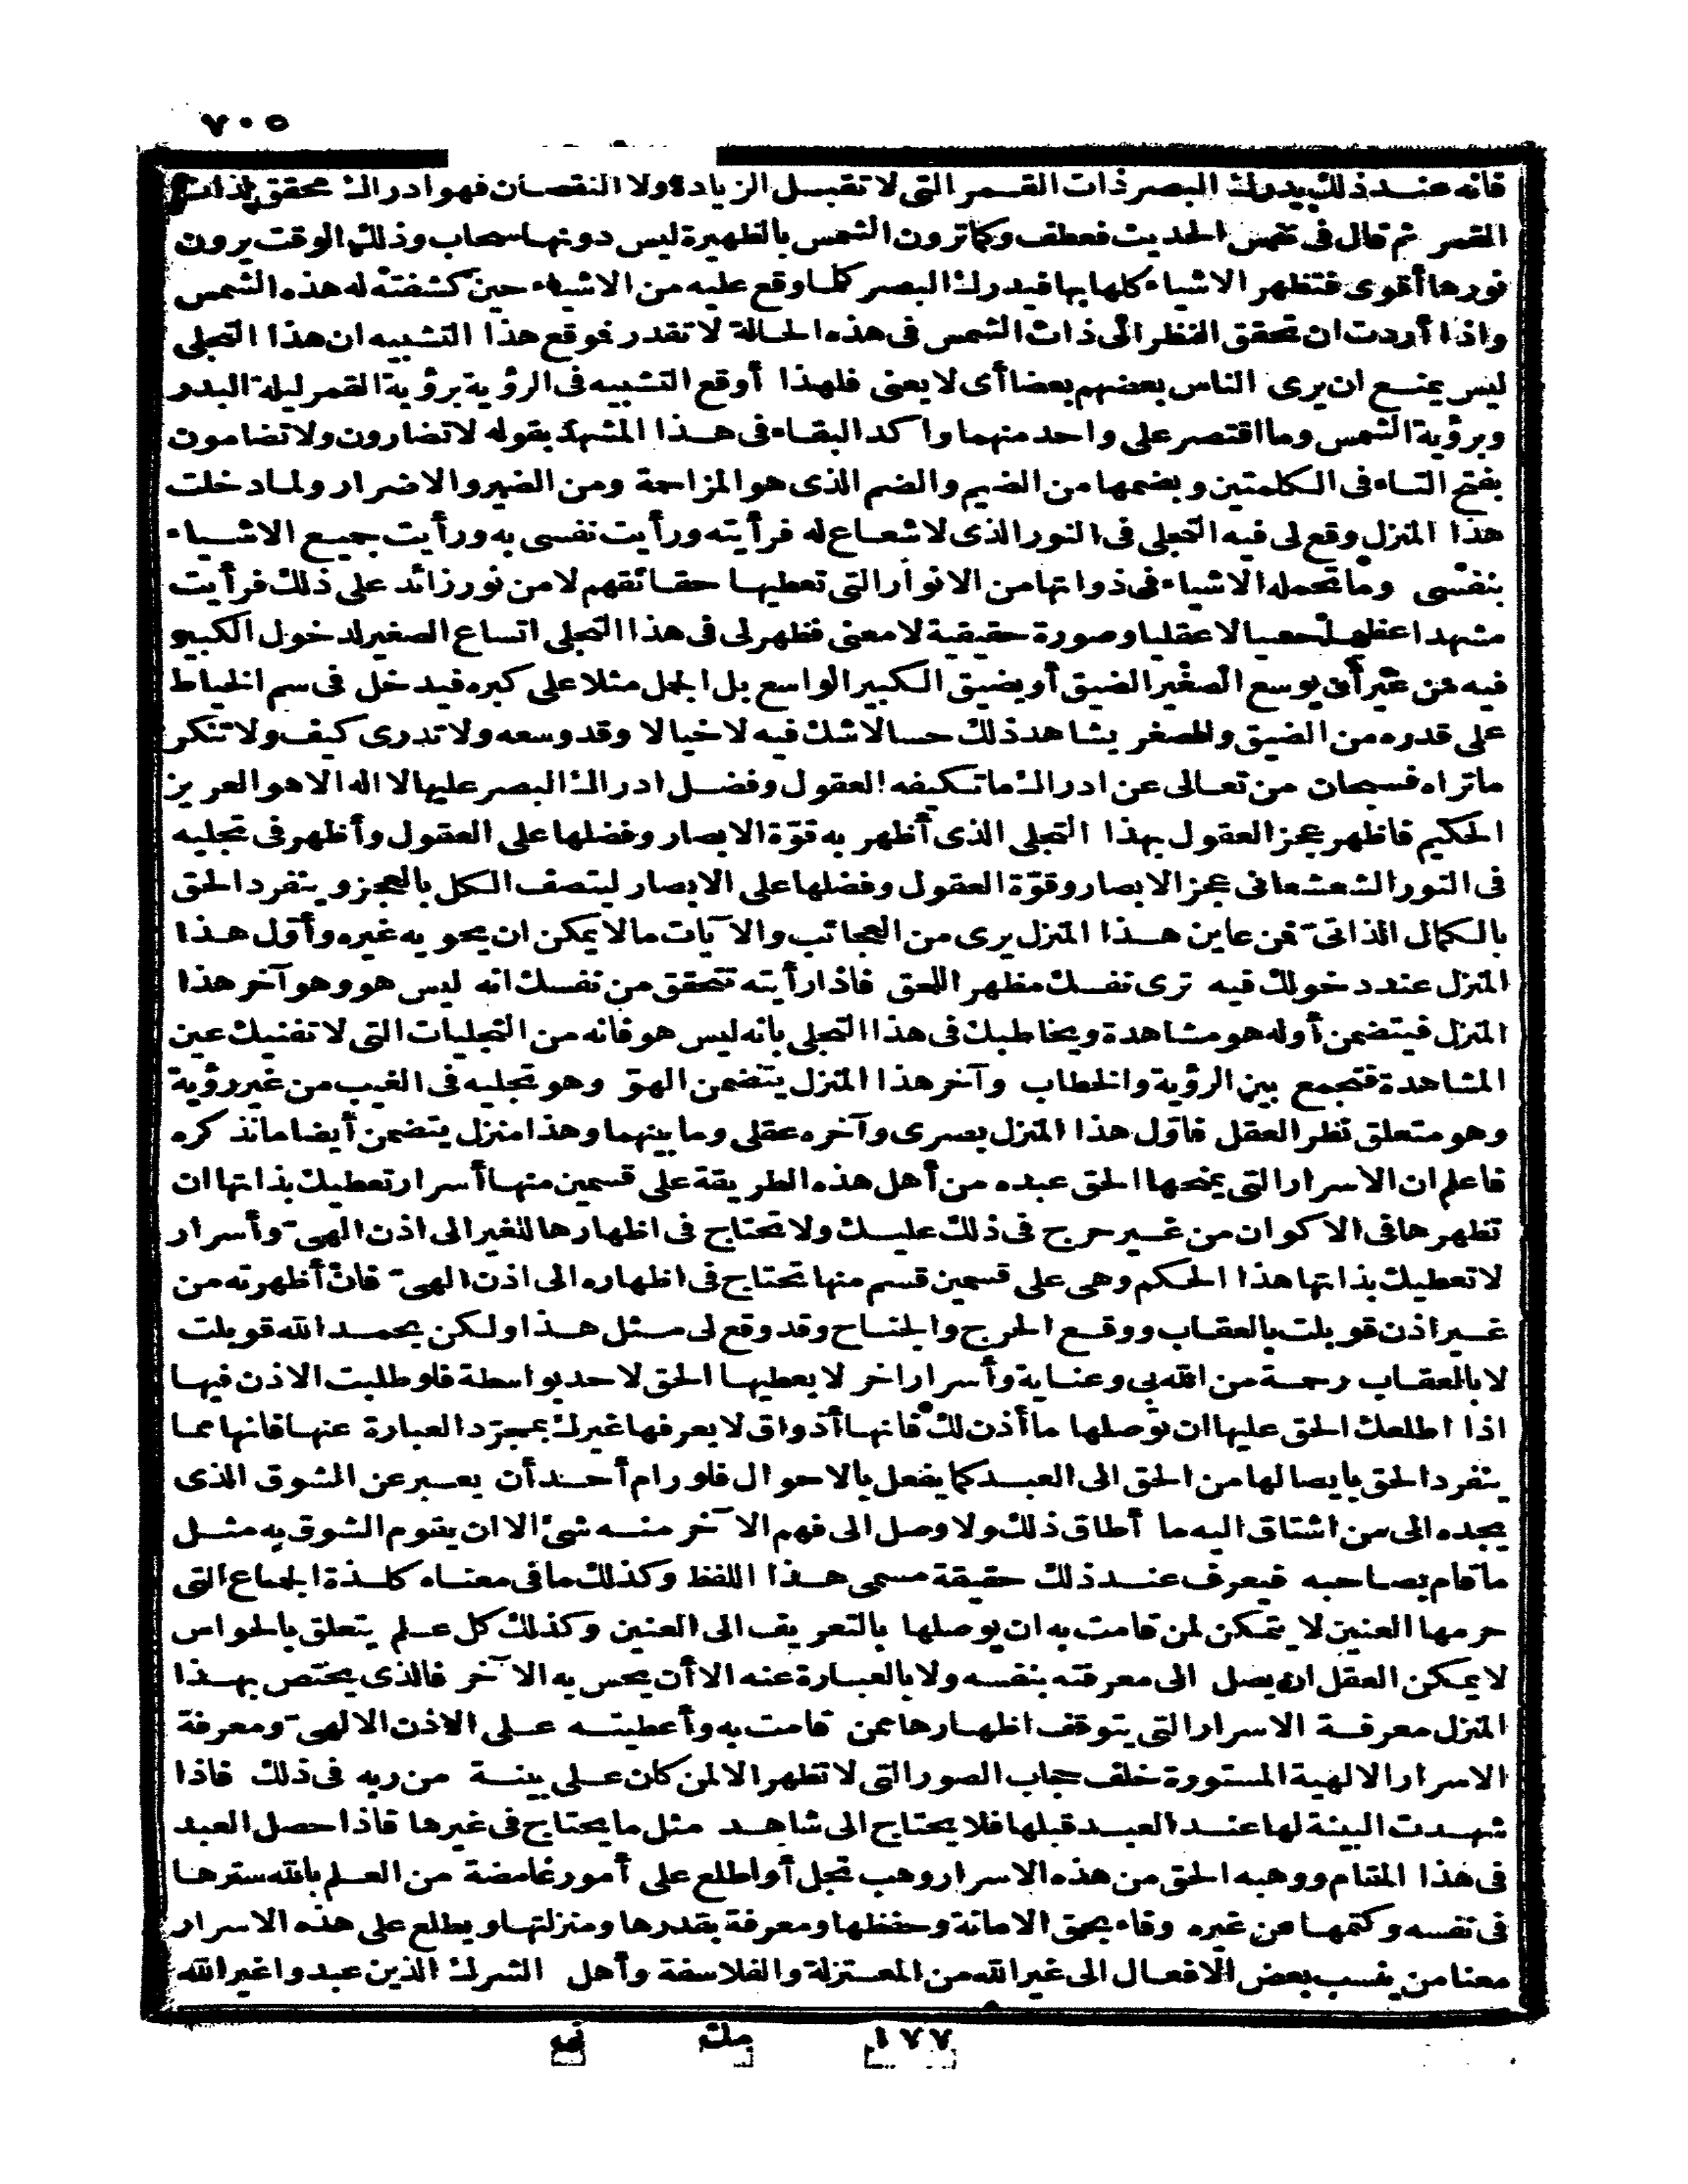 ٧٠٥
فانه عند ذلك يدرك البصر ذات القمر التى لا تقبل الزيادة ولا النقصان فهو ادراك محقق لذات
القمر ثم قال فى نفس الحديث فعطف وكما ترون الشمس بالظهيرة ليس دونها سحاب وذلك الوقت يرون
نورها أقوى فتظهر الاشياء كلها بها فيدرك البصر كلما وقع عليه من الاشياء حين كشفته له هذه الشمس
واذا أردت ان تحقق النظر الى ذات الشمس فى هذه الحالة لا تقدر فوقع هذا التشبيه ان هذا التجلى
ليس يمنع ان يرى الناس بعضهم بعضا أى لا يعنى فلهذا أوقع التشبيه فى الرؤية برؤية القمر ليلة البدر
وبرؤية الشمس وما اقتصر على واحد منهما واكد البقاء فى هذا المشهد بقوله لا تضارون ولا تضامون
بفتح التاء فى الكلمتين وبضمها من الضيم والضم الذى هو المزاحمة ومن الضير والاضرار ولما دخلت
هذا المنزل وقع لى فيه التجلى فى النور الذى لا شعاع له فرأيته ورأيت نفسى به ورأيت جميع الاشياء
بنفسى وما تحمله الاشياء فى ذواتها من الانوار التى تعطيها حقائقهم لا من نور زائد على ذلك فرأيت
مشهدا عظيما حسيا لا عقليا وصورة حقيقية لا معنى فظهر لى فى هذا التجلى اتساع الصغير لدخول الكبير
فيه من غير أن يوسع الصغير الضيق أو يضيق الكبير الواسع بل الجمل مثلا على كبره فيدخل فى سم الخياط
على قدره من الضيق والصغر يشاهد ذلك حسا لا شك فيه لا خيالا وقد وسعه ولا تدرى كيف ولا تنكر
ما تراه فسبحان من تعالى عن ادراك ما تكيفه العقول وفضل ادراك البصر عليها لا اله الا هو العزيز
الحكيم فاظهر عجز العقول بهذا التجلى الذى أظهر به قوّة الابصار وفضلها على العقول وأظهر فى تجليه
فى النور الشعشعانى عجز الابصار وقوّة العقول وفضلها على الابصار ليتصف الكل بالعجز وينفرد الحق
بالكمال الذاتى فمن عاين هذا المنزل يرى من العجائب والآيات ما لا يمكن ان يحويه غيره وأوّل هذا
المنزل عند دخولك فيه ترى نفسك مظهر اللحق فاذا رأيته تتحقق من نفسك انه ليس هو وهو آخر هذا
المنزل فيتضمن أوله هو مشاهدة ويخاطبك فى هذا التجلى بانه ليس هو فانه من التجليات التى لا تفنيك عين
المشاهدة فتجمع بين الرؤية والخطاب وآخر هذا المنزل يتضمن الهو وهو تجليه فى الغيب من غير رؤية
وهو متعلق نظر العقل فاوّل هذا المنزل بصرى وآخره عقلى وما بينهما وهذا منزل يتضمن أيضا ما نذكره
فاعلم ان الاسرار التى يمنحها الحق عبده من أهل هذه الطريقة على قسمين منها أسرار تعطيك بذاتها ان
تظهرها فى الاكوان من غير حرج فى ذلك عليك ولا تحتاج فى اظهارها للغير الى اذن الهىّ وأسرار
لا تعطيك بذاتها هذا الحكم وهى على قسمين قسم منها تحتاج فى اظهاره الى اذن الهىّ فان أظهرته من
غير اذن قوبلت بالعقاب ووقع الحرج والجناح وقد وقع لى مثل هذا ولكن بحمد الله قوبلت
لا بالعقاب رحمة من الله بى وعناية وأسرار اخر لا يعطيها الحق لاحد بواسطة فلو طلبت الاذن فيها
اذا اطلعك الحق عليها ان توصلها ما أذن لك فانها أذواق لا يعرفها غيرك بمجرّد العبارة عنها فانها مما
ينفرد الحق بايصالها من الحق الى العبد كما يفعل بالاحوال فلو رام أحد أن يعبر عن الشوق الذى
يجده الى من اشتاق اليه ما أطاق ذلك ولا وصل الى فهم الآخر منه شئ الا ان يقوم الشوق به مثل
ما قام بصاحبه فيعرف عند ذلك حقيقة مسمى هذا اللفظ وكذلك ما فى معناه كلذة الجماع التى
حرمها العنين لا يتمكن لمن قامت به ان يوصلها بالتعريف الى العنين وكذلك كل علم يتعلق بالحواس
لا يمكن العقل ان يصل الى معرفته بنفسه ولا بالعبارة عنه الا أن يحس به الآخر فالذى يختص بهذا
المنزل معرفة الاسرار التى يتوقف اظهارها ممن قامت به وأعطيته على الاذن الالهىّ ومعرفة
الاسرار الالهية المستورة خلف حجاب الصور التى لا تظهر الا لمن كان على بينة من ربه فى ذلك فاذا
شهدت البينة لها عند العبد قبلها فلا يحتاج الى شاهد مثل ما يحتاج فى غيرها فاذا حصل العبد
فى هذا المقام ووهبه الحق من هذه الاسرار وهب تجل أو اطلع على أمور غامضة من العلم بالله سترها
فى نفسه وكتمها عن غيره وفاء بحق الامانة وحفظها ومعرفة بقدرها ومنزلتها ويطلع على هذه الاسرار
معنا من ينسب بعض الافعال الى غير الله من المعتزلة والفلاسفة وأهل الشرك الذين عبدوا غير الله
١٧٧ مك نى